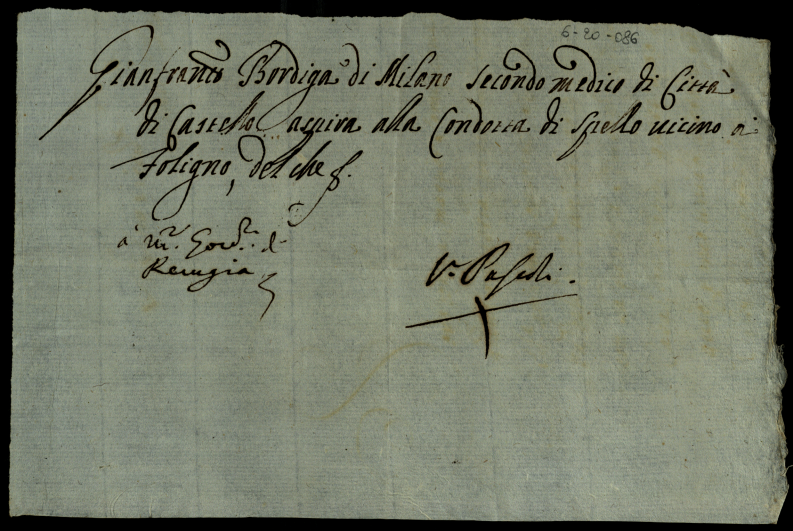 6-20-086
Gianfranco Bordiga di Milano secondo medico di Città
di Castello aspira alla Condotta di Spello vicino a
Foligno, del che f.
a m.r Gov.r d
Perugia